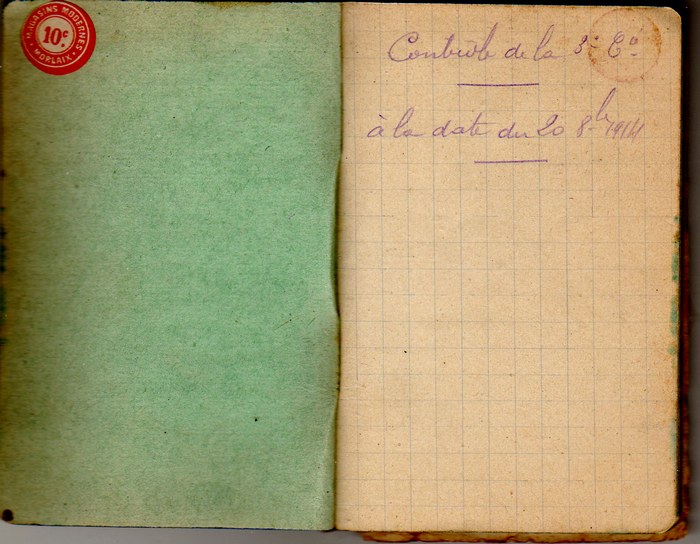 MAGASINS MODERNES
10c.
MORLAIX
Contrôle de la 8e Cie
à la date du 20 8bre 1914